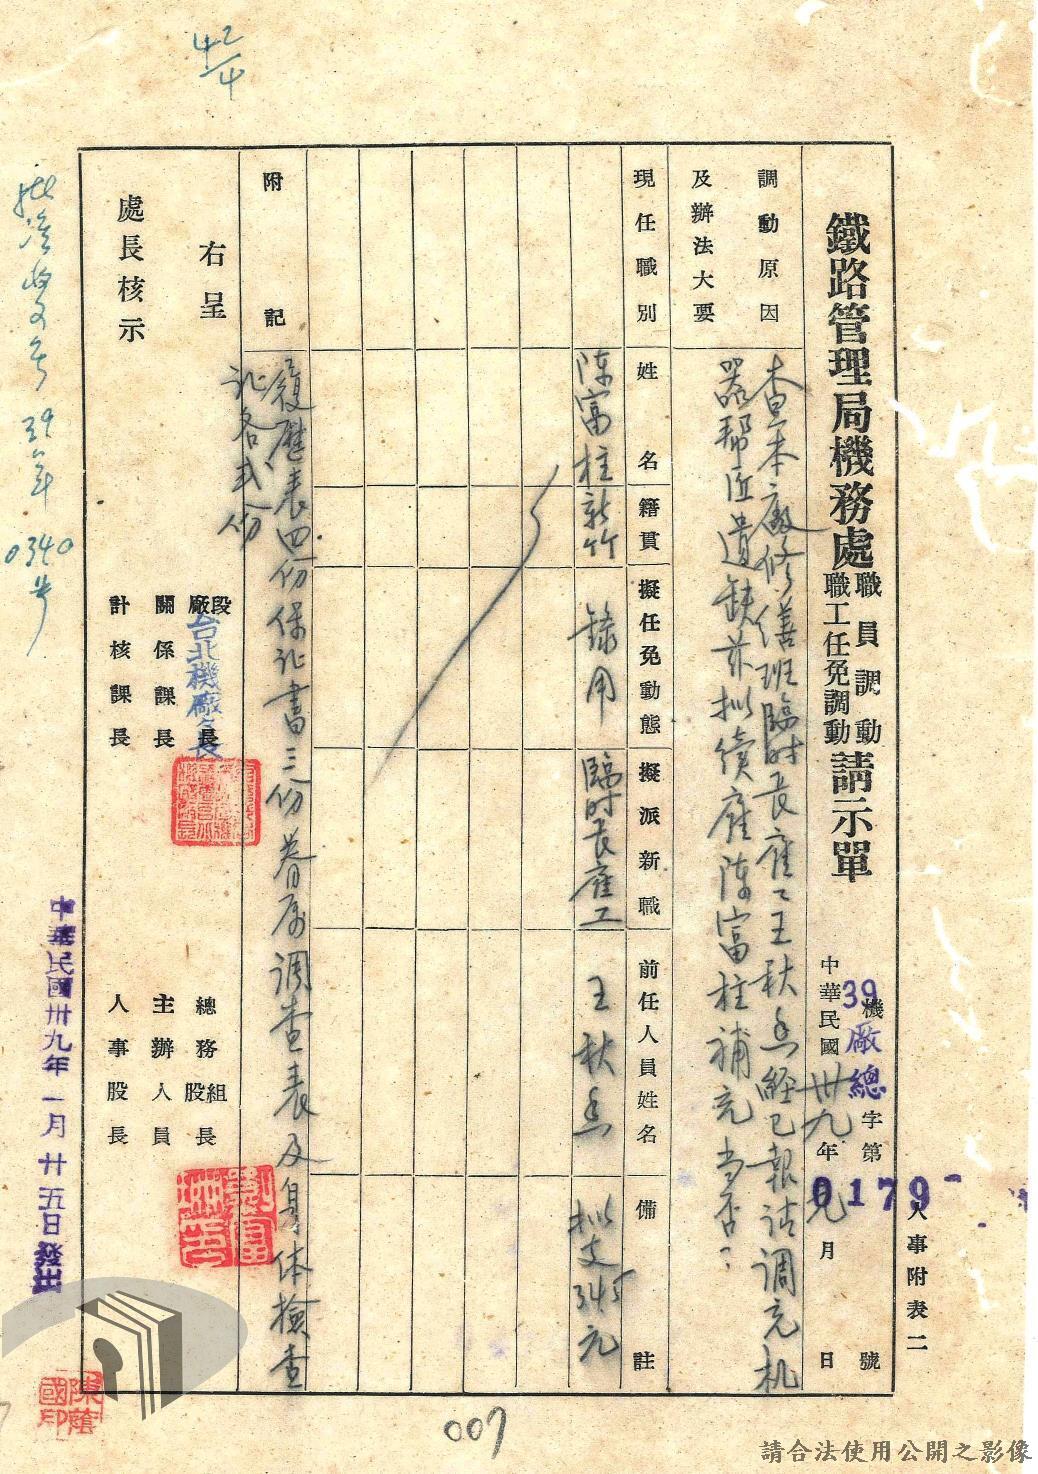 人事附表二
鐵路管理局機務處職員調動職工任免調動請示單
39機廠總字第0179號
中華民國卅九年元月 日
調動原因及辦法大要
查本廠修繕班臨时長雇工王秋
經已報請調充机
器帮匠遺缺茲拟续雇陈富柱補充当否?
現任職別
姓名
籍貫
擬任免動態
擬派新職
前任人員姓名
備註
陈富柱
新竹
錄用
臨时長雇工
王秋
拟支345元
附記
履歷表四份保証書三份眷属调查表及身体檢查
証各弍份
右呈
段廠長
台北機廠長
總務組股長
關係課長
主辦人員
計核課長
人事股長
處長核示
中華民國卅九年一月廿五日發出
39年0340号
42/4
陳蔭國印
007
請合法使用公開之影像